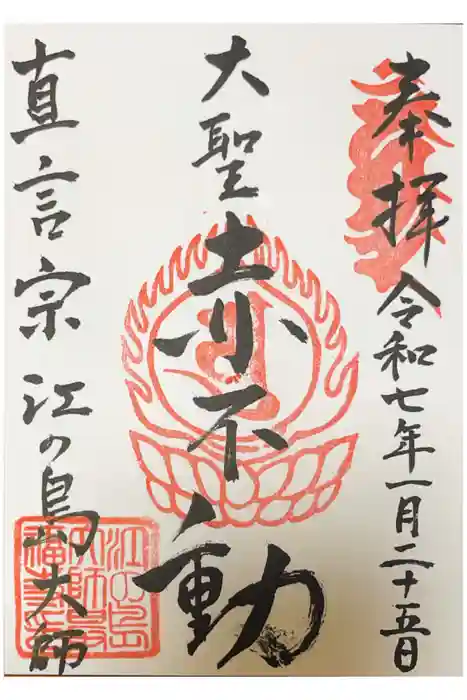 奉拝
令和七年一月二十五日
大聖赤不動
真言宗 江の島大師